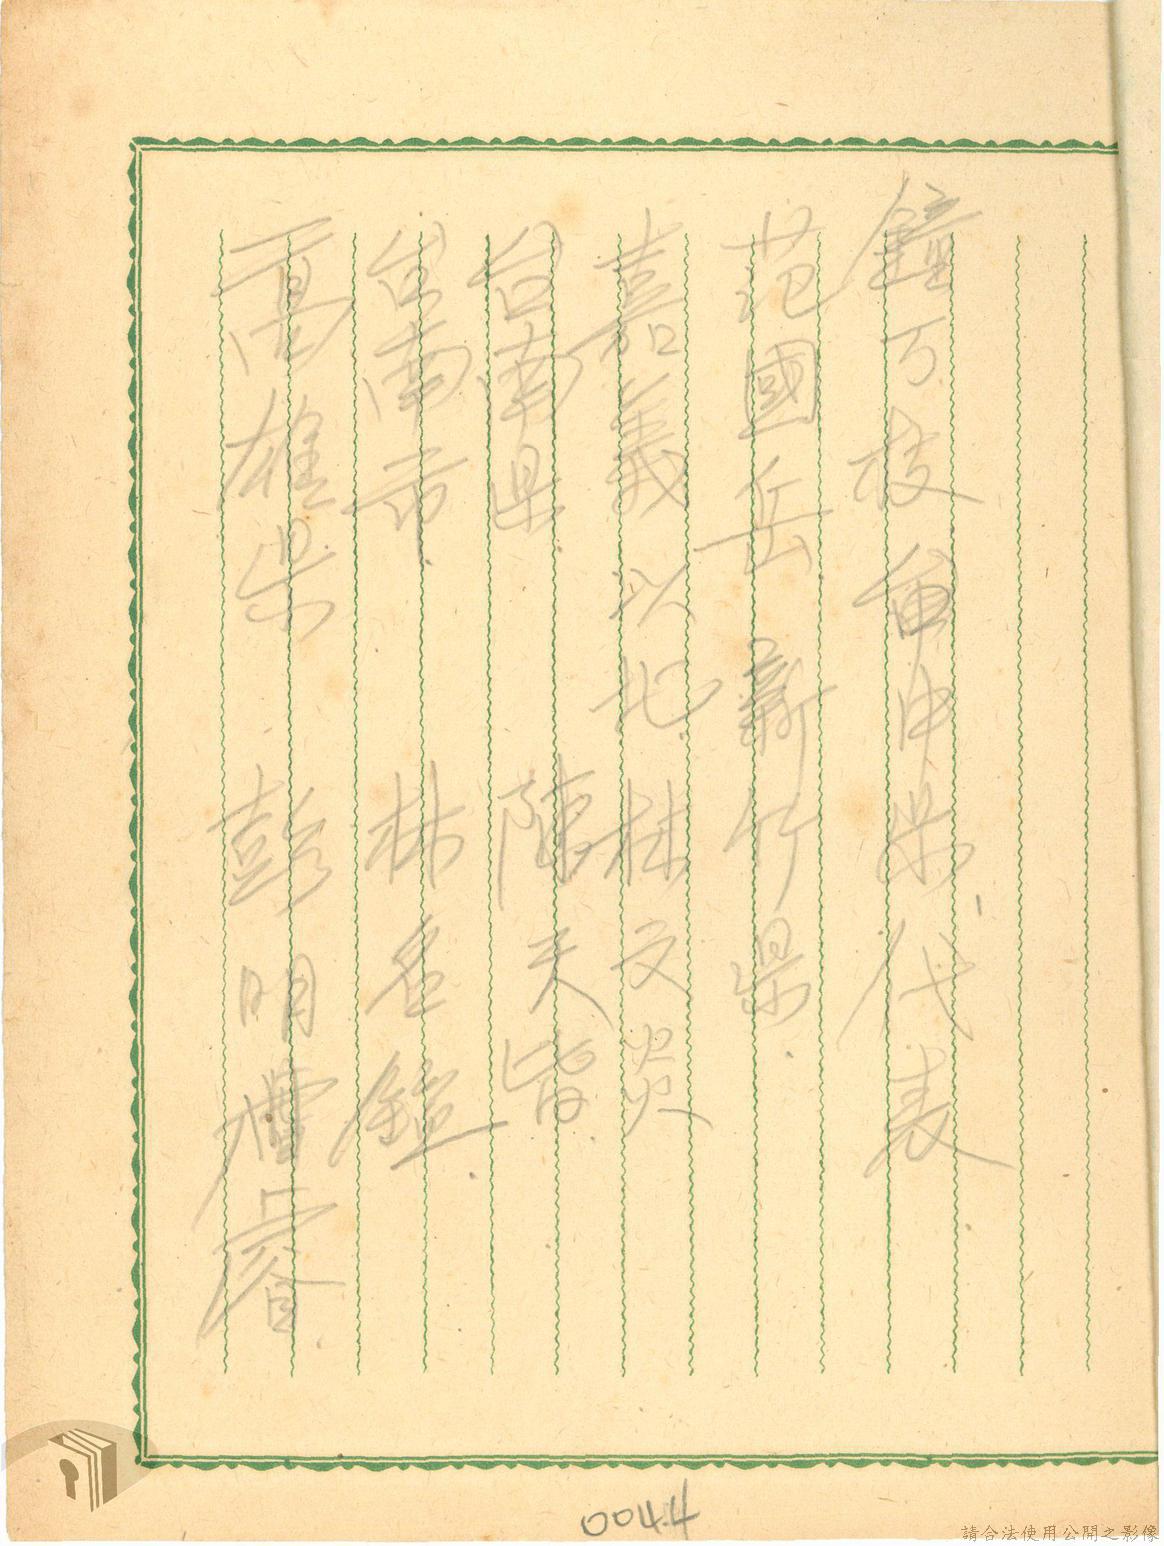 鐘万枝 台中県代表
范國岳 新竹県.
嘉義以北. 林文炎
台南県. 陳天皆.
台南市. 林名鐘.
高雄県 彭明
0044
請合法使用公開之影像